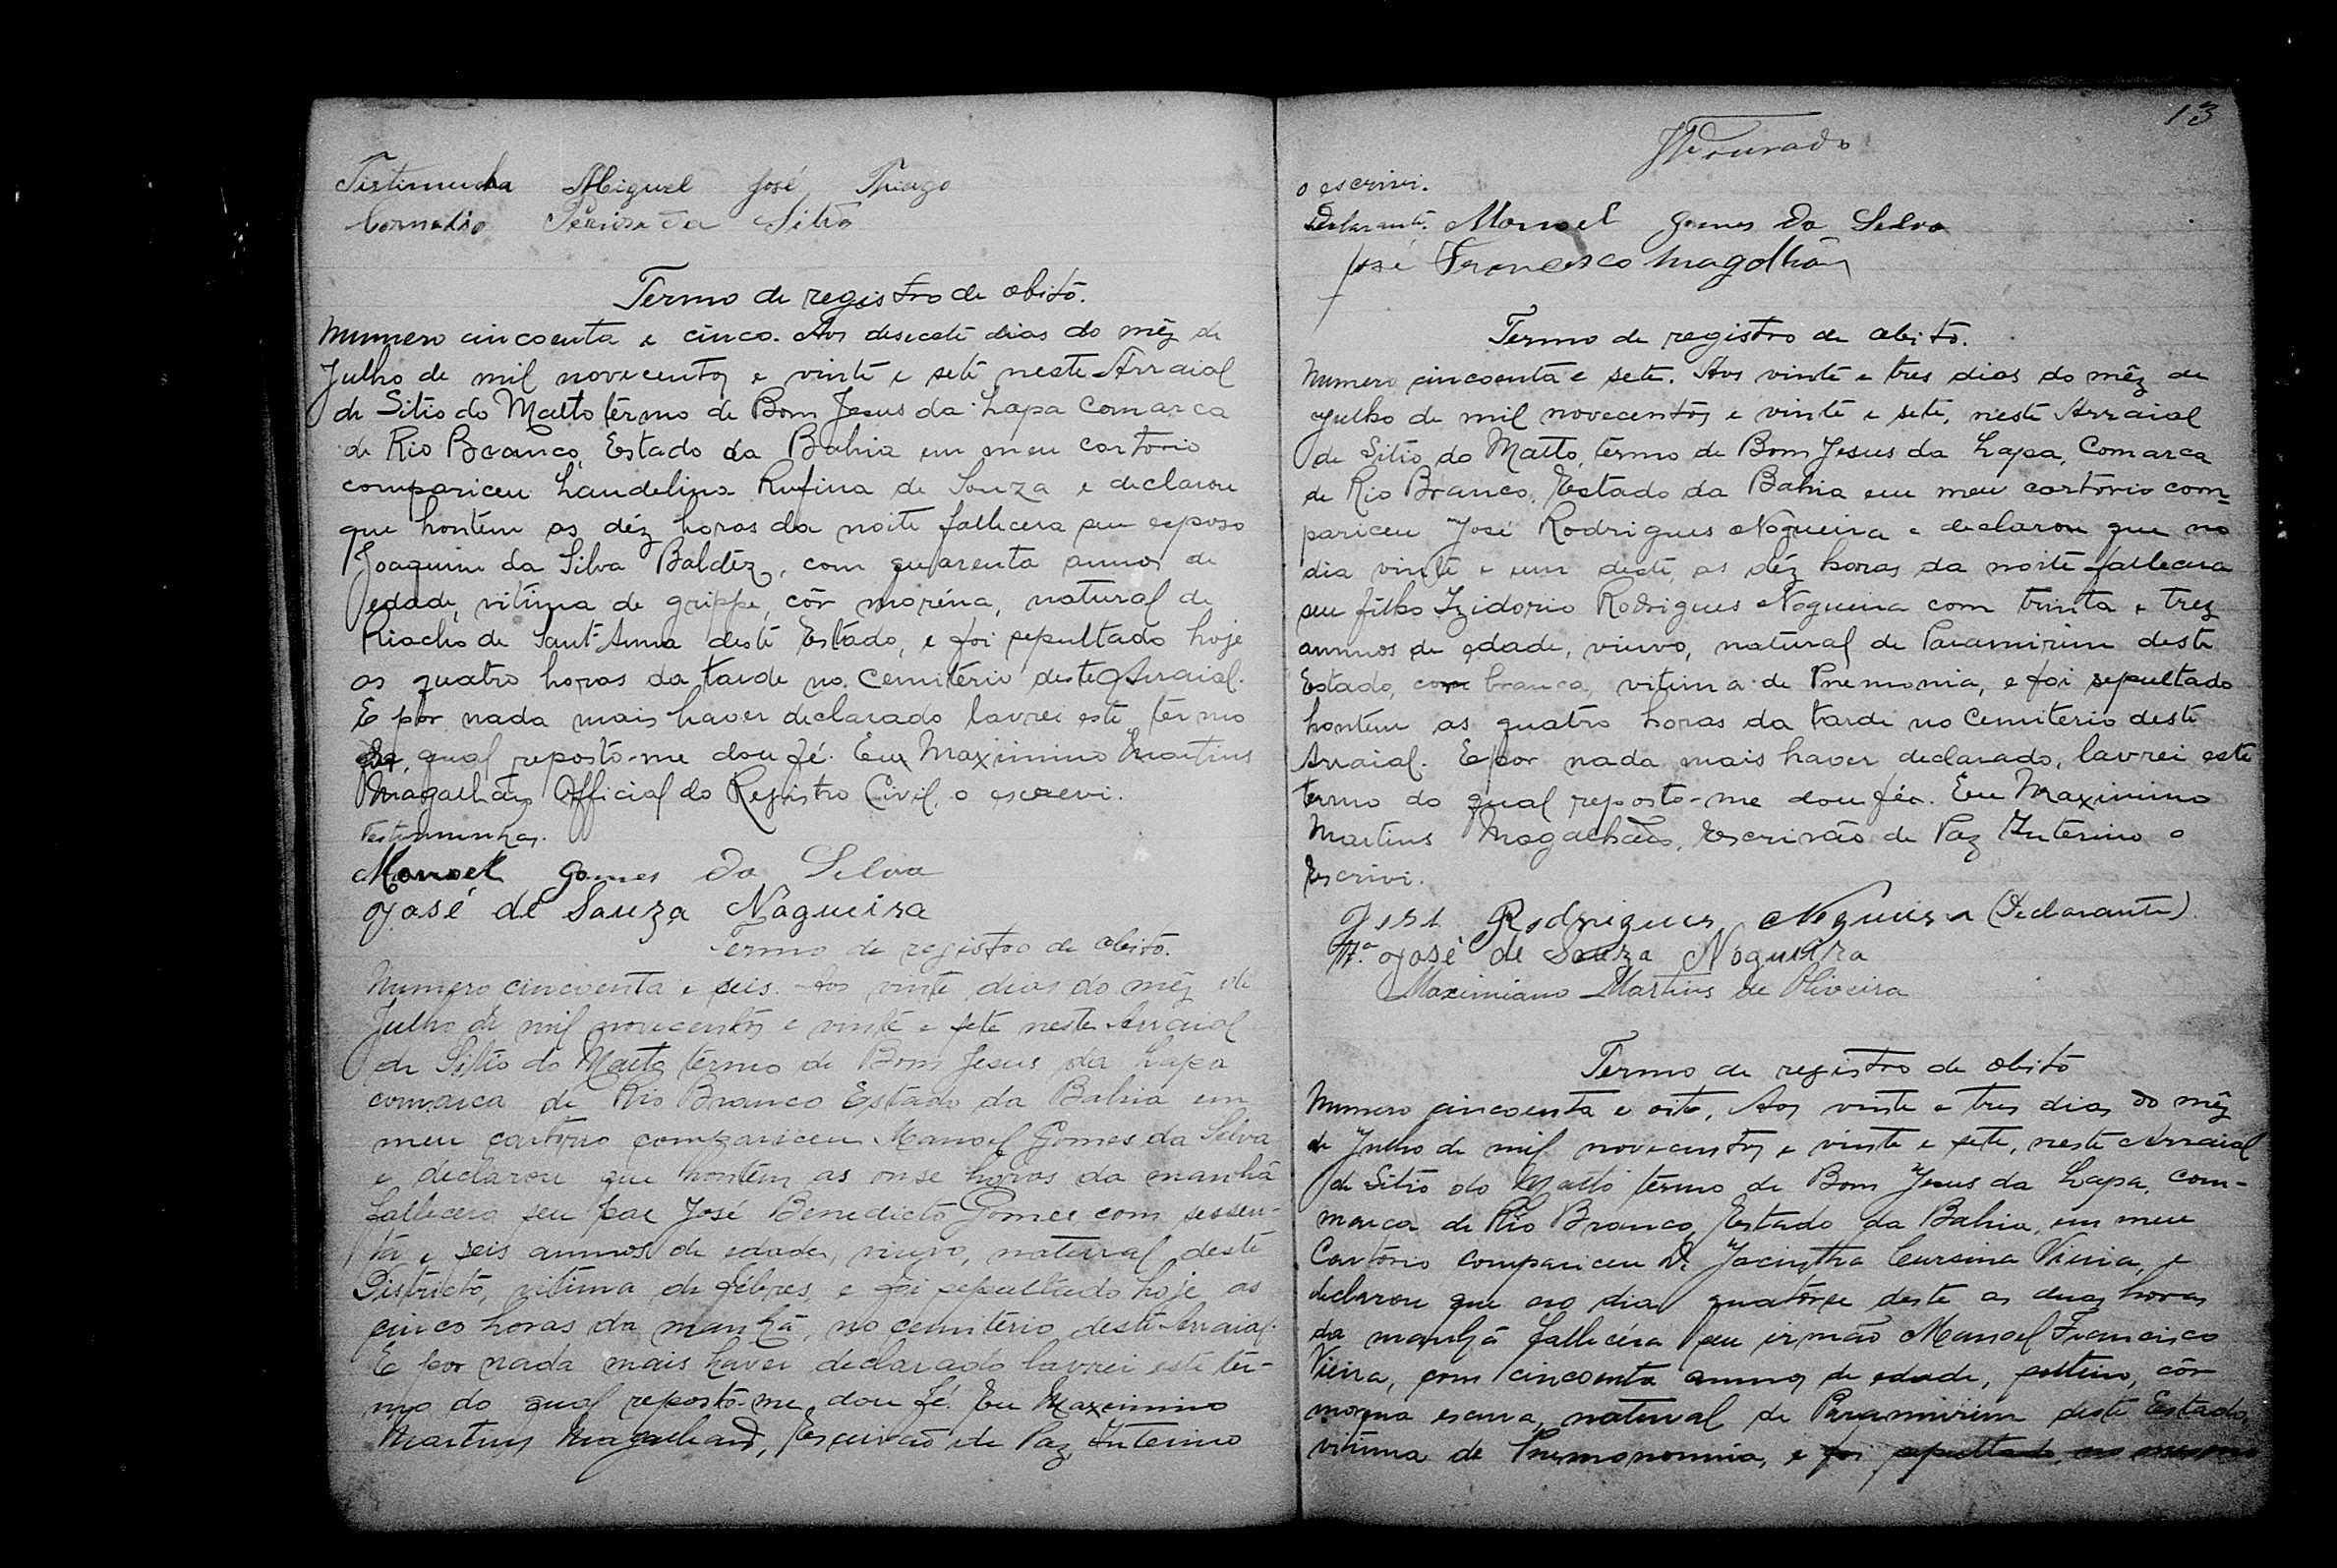 Testimunha Miguel José Thiago
Cornelio Pereira da Silva
Termo de registro de obito.
Numero cincoenta e cinco. Aos desecete dias do mêz de
Julho de mil novecentos e vinte e sete neste Arraial
de Sitio do Matto têrmo de Bom Jesus da Lapa Comarca
de Rio Branco, Estado da Bahia em meu cartorio
compariceu Laudelina Rufina de Souza e declarou
que hontem as déz horas da noite fallecera seu esposo
Joaquim da Silva Baldêz, com quarenta annos de
edade, vitima de grippe, côr moréna, natural de
Riacho de Sant'Anna deste Estado, e foi sepultado hoje
as quatro horas da tarde no Cemitério deste Arraial.
E por nada mais haver declarado lavrei este têrmo
qual reposto-me dou fé. Eu Maximino Martins
Magalhães Official do Registro Civil, o escrevi.
Testimunhas.
Manoel Gomes da Silva
José de Souza Nogueira
Termo de registro de obito.
Numero cincoenta e seis. Aos vinte dias do mêz de
Julho de mil novecentos e vinte e sete neste Arraial
de Sitio do Matto têrmo de Bom Jesus da Lapa
comarca de Rio Branco Estado da Bahia em
meu cartorio compariceu Manoel Gomes da Silva
e declarou que hontem as onse horas da manhã
fallecera seu pae José Benedicto Gomes com sessen-
ta e seis annos de edade, viuvo, natural deste
Districto, vitima de fébres, e foi sepultado hoje as
cinco horas da manhã, no cemitério deste Arraial.
E por nada mais haver declarado lavrei este têr-
mo do qual reposto-me dou fé. Eu Maximino
Martins Magalhães, Escrivão de Paz Interino
13
Dourado
o escrivi.
Declarante. Manoel Gomes da Selva
José Francisco Magalhães
Termo de registro de obito.
Numero cincoenta e sete. Aos vinte e tres dias do mêz de
Julho de mil novecentos e vinte e sete, neste Arraial
de Sitio do Matto, têrmo de Bom Jesus da Lapa, Comarca
de Rio Branco, Estado da Bahia em meu cartorio com=
pariceu José Rodrigues Nogueira e declarou que no
dia vinte e um deste, as déz horas da noite fallecera
seu filho Izidorio Rodrigues Nogueira com trinta e trez
annos de edade, viuvo, natural de Paramirim deste
Estado, com branca, vitima de Pnemonia, e foi sepultado
hontem as quatro horas da tarde no Cemiterio deste
Arraial. E por nada mais haver declarado, lavrei este
termo do qual reposto-me dou fé. Eu Maximino
Martins Magalhães, Escrivão de Paz Interino o
Escrivi.
José Rodrigues Nogueira (Declarante).
Tª José de Souza Nogueira
Maximiano Martins de Oliveira
Termo de registro de obito
Numero cincoenta e oito, Aos vinte e tres dias do mêz
de Julho de mil novecentos e vinte e sete, neste Arraial
de Sitio do Matto têrmo de Bom Jesus da Lapa, Com-
marca de Rio Branco, Estado da Bahia, em meu
Cartorio compariceu D. Jacintha Cursina Vieira, e
declarou que no dia quatôrse deste as duas horas
da manhã fallecéra seu irmão Manoel Francisco
Vieira, com cincoenta annos de edade, solteiro, côr
morena escura, natural de Paramirim deste Estado,
vitima de Pnemonomia, e foi sepultado, no mesmo